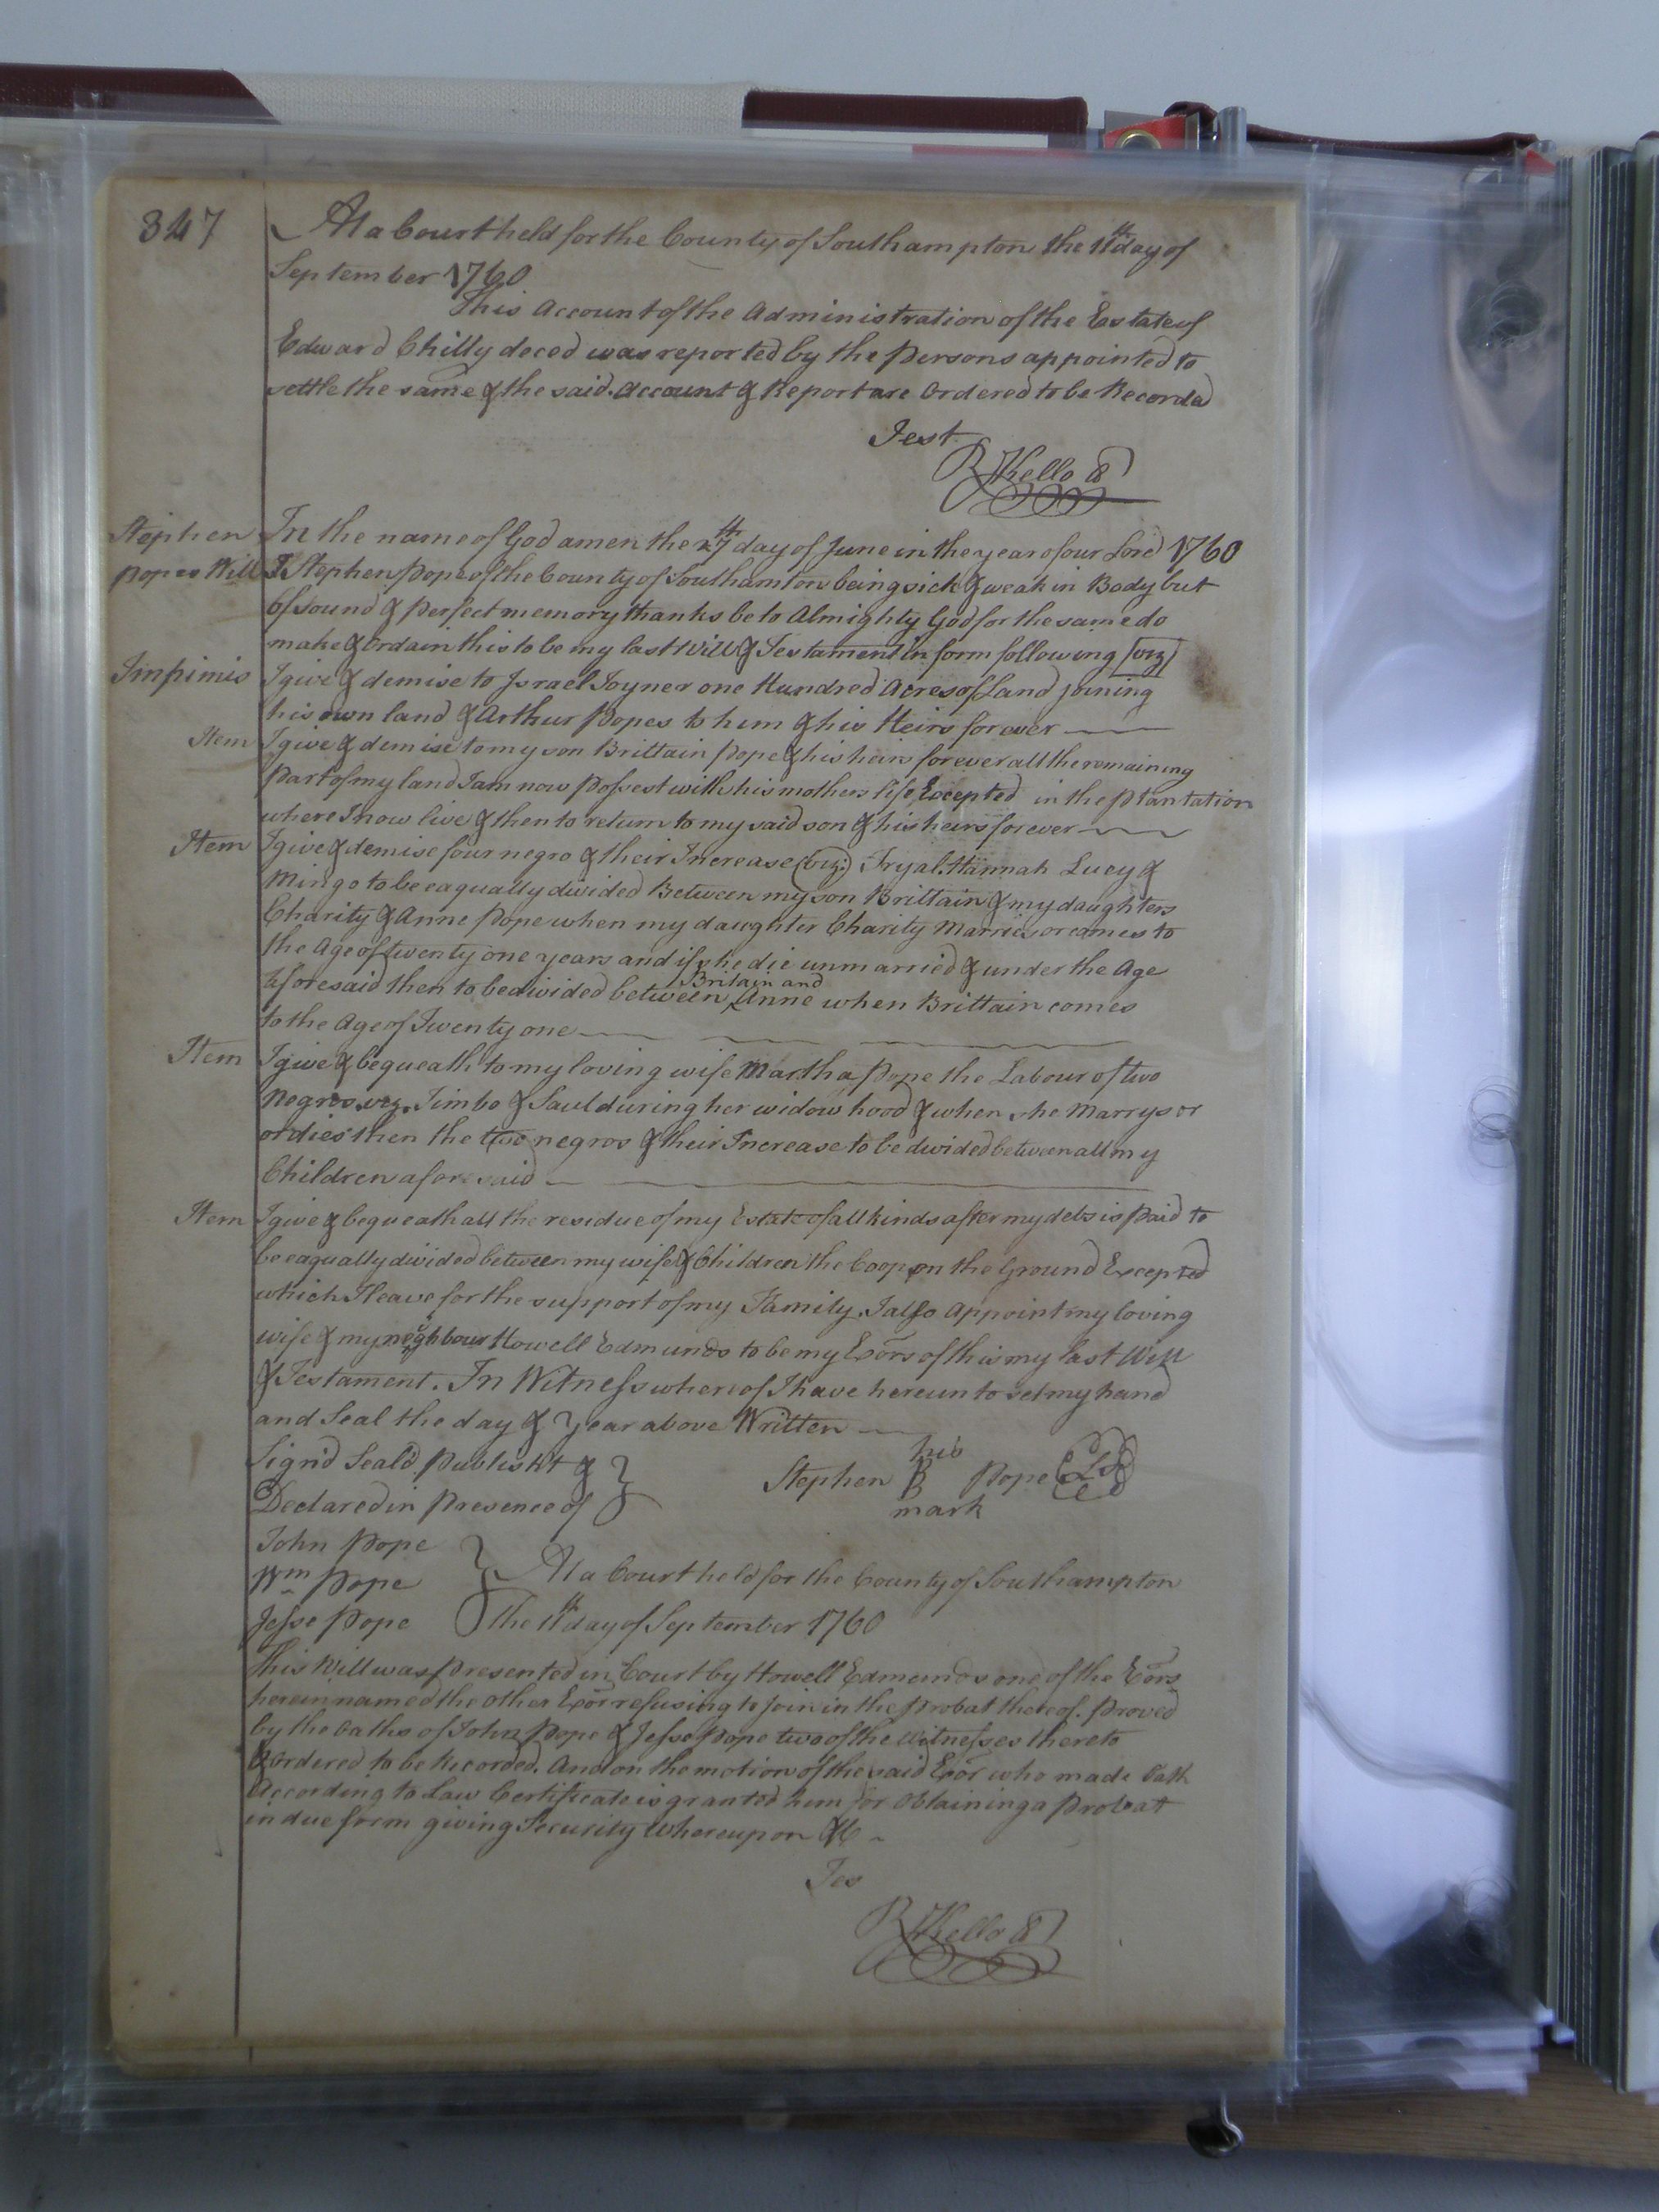 347
At a Court held for the County of Southampton the 11th day of
September 1760
This Account of the Administration of the Estate of
Edward Chilly deced was reported by the persons appointed to
settle the same & the said Account & Report are Ordered to be Recorded
Test
R Kello
Stephen
Popes Will
In the name of God amen the 27th day of June in the year of our Lord 1760
I Stephen Pope of the County of Southamton being sick & weak in Body but
of sound & perfect memory thanks be to Almighty God for the same do
make & Ordain this to be my last Will & Testament in form following [viz]
Impimis I give & demise to Israel Joyner one Hundred Acres of Land joining
his own land & Arthur Popes to him & his Heirs forever
Item I give & demise to my son Brittain Pope & his heirs forever all the remaining
part of my land I am now possest with his mothers life Excepted in the plantation
where I now live & then to return to my said son & his heirs forever
Item I give & demise four negro & their Increase (viz:) Tryal. Hannah Lucy &
Mingo to be eaqually divided Between my son Brittain & my daughters
Charity & Anne Pope when my daughter Charity Marries or comes to
the Age of twenty one years and if she die unmarried & under the Age
Aforesaid then to be divided between Britain and Anne when Brittain comes
to the Age of Twenty one
Item I give & bequeath to my loving wife Martha Pope the Labour of two
Negros viz. Jimbo & Saul during her widow hood & when she Marrys or
or dies then the two negros & their Increase to be divided between all my
Children afore said
Item I give & bequeath all the residue of my Estate of all kinds after my debs is paid to
be eaqually divided between my wife & Children the Coop on the Ground Excepted
which I leave for the support of my Family. I also Appoint my loving
wife & my neighbour Howell Edmunds to be my Exors of this my last Will
& Testament. In Witness whereof I have hereunto set my hand
and Seal the day & year above Written
Sign'd Seald publisht &
Declared in presence of
Stephen his B mark Pope LS
John Pope
Wm Pope
Jesse Pope
At a Court held for the County of Southampton
the 11th day of September 1760
This Will was presented in Court by Howell Edmunds one of the Exors
herein named the other Exor refusing to join in the probat thereof. proved
by the Oaths of John Pope & Jesse Pope two of the Witnesses thereto
& Ordered to be Recorded. And on the motion of the said Exor who made Oath
According to Law Certificate is granted him for Obtaining a probat
in due form giving Security Whereupon &c
Tes
R Kello